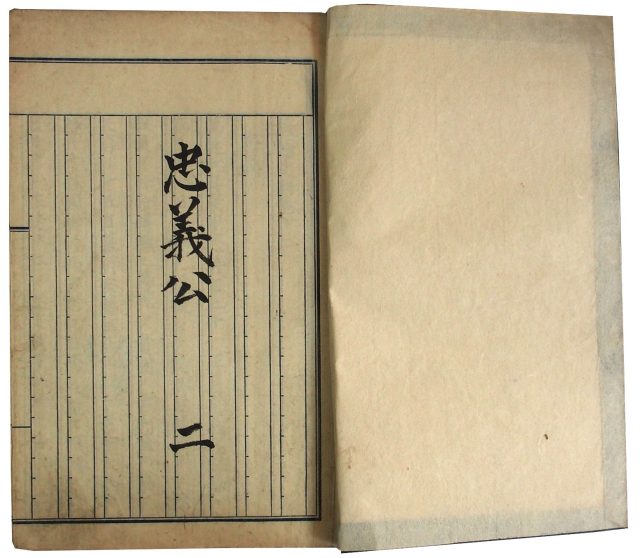 忠義公 二